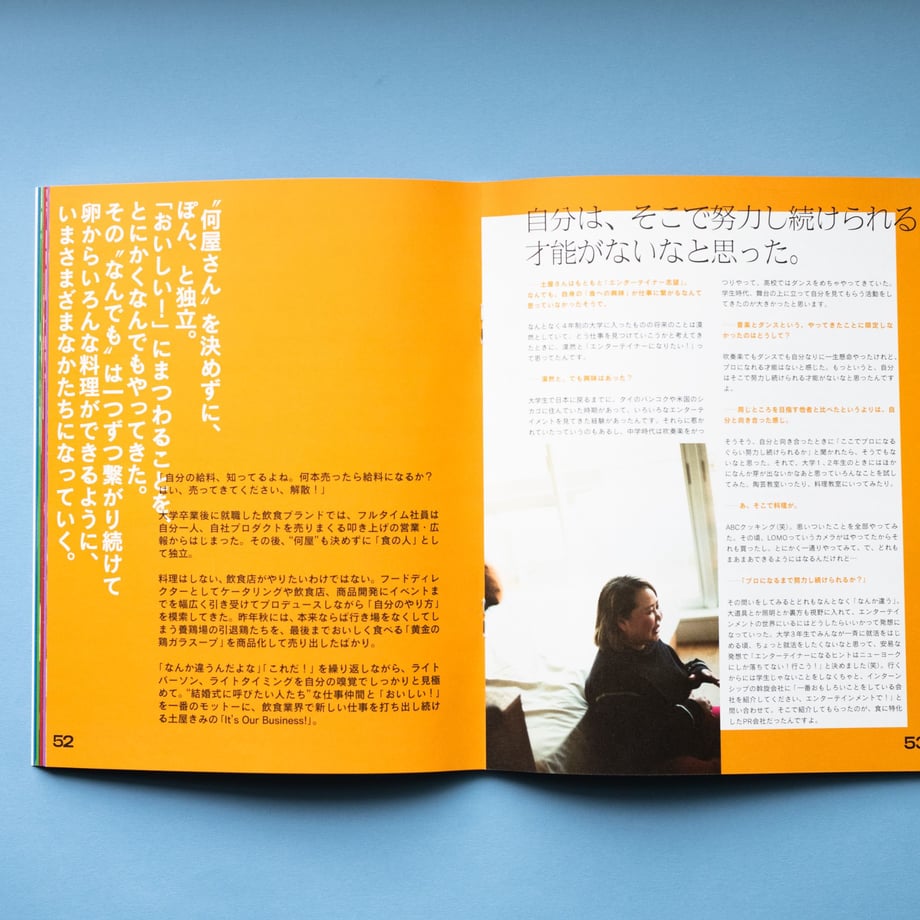 “何屋さん”を決めずに、
ぽん、と独立。
「おいしい！」にまつわることを
とにかくなんでもやってきた。
その“なんでも”は一つずつ繋がり続けて
卵からいろんな料理ができるように、
いまさまざまなかたちになっていく。
「自分の給料、知ってるよね。何本売ったら給料になるか？
はい、売ってきてください、解散！」
大学卒業後に就職した飲食ブランドでは、フルタイム社員は
自分一人、自社プロダクトを売りまくる叩き上げの営業・広
報からはじまった。その後、“何屋”も決めずに「食の人」とし
て独立。
料理はしない、飲食店がやりたいわけではない。フードディレ
クターとしてケータリングや飲食店、商品開発にイベントま
でを幅広く引き受けてプロデュースしながら「自分のやり方」
を模索してきた。昨年秋には、本来ならば行き場をなくしてし
まう養鶏場の引退鶏たちを、最後までおいしく食べる「黄金の
鶏ガラスープ」を商品化して売り出したばかり。
「なんか違うんだよな」「これだ！」を繰り返しながら、ライト
パーソン、ライトタイミングを自分の嗅覚でしっかりと見極
めて。“結婚式に呼びたい人たち”な仕事仲間と「おいしい！」
を一番のモットーに、飲食業界で新しい仕事を打ち出し続け
る土屋きみの「It's Our Business!」。
52
自分は、そこで努力し続けられる
才能がないなと思った。
土屋さんはもともと「エンターテイナー志望」。
なんでも、自身の「食への興味」が仕事に繋がるなんて
思っていなかったそうで。
なんとなく4年制の大学に入ったものの将来のことは漠
然としていて、どう仕事を見つけていこうかと考えてき
たときに、漠然と「エンターテイナーになりたい！」っ
て思ってたんです。
──漠然と、でも興味はあった？
大学生で日本に戻るまでに、タイのバンコクや米国のシ
カゴに住んでいた時期があって、いろいろなエンターテ
イメントを見てきた経験があったんです。それらに惹か
れていたっていうのもあるし、中学時代は吹奏楽をがっ
つりやって、高校ではダンスをめちゃやってきていた。
学生時代、舞台の上に立って自分を見てもらう活動をし
てきたのが大きかったと思います。
──音楽とダンスという、やってきたことに限定しな
かったのはどうして？
吹奏楽でもダンスでも自分なりに一生懸命やったけれど、
プロになれる才能はないと感じた。もっというと、自分
はそこで努力し続けられる才能がないなと思ったんです
よ。
──同じところを目指す他者と比べたというよりは、自
分と向き合った感じ。
そうそう、自分と向き合ったときに「ここでプロになる
ぐらい努力し続けられるか」と聞かれたら、そうでもな
いなと思った。それで、大学1、2年生のときにはほか
になんか芽が出ないかなあと思っていろんなことを試し
てみた。陶芸教室いったり、料理教室にいってみたり。
──あ、そこで料理が。
ABCクッキング（笑）。思いついたことを全部やってみ
た。その頃、LOMOっていうカメラがはやってたからそ
れも買ったし。とにかく一通りやってみて、で、どれも
まあまあできるようにはなるんだけれど…
──「プロになるまで努力し続けられるか？」
その問いをしてみるとどれもなんとなく「なんか違う」。
大道具とか照明とか裏方も視野に入れて、エンターテイ
ンメントの世界にいるにはどうしたらいいかって発想に
なっていった。大学3年生でみんな一斉に就活をはじめ
る頃、ちょっと就活をしたくないなと思って、安易な
発想で「エンターテイナーになるヒントはニューヨーク
にしか落ちてない！行こう！」と決めました（笑）。行く
からには学生じゃないことをしなくちゃと、インターン
シップの斡旋会社に「一番おもしろいことをしている会
社を紹介してください、エンターテインメントで！」と
問い合わせて。そこで紹介してもらったのが、食に特化
したPR会社だったんですよ。
53